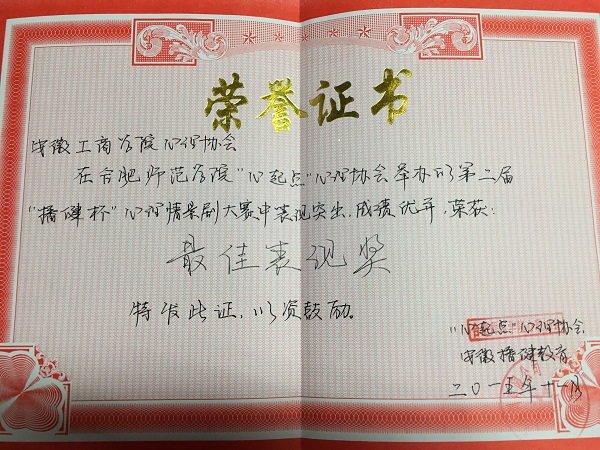 荣誉证书
安徽工商学院心理协会
在合肥师范学院"心起点"心理协会举办的第二届
"播睫杯"心理情景剧大赛中表现突出,成绩优异,荣获:
最佳表现奖
特发此证,以资鼓励。
"心起点"心理协会
安徽播睫教育
二〇一五年十一月